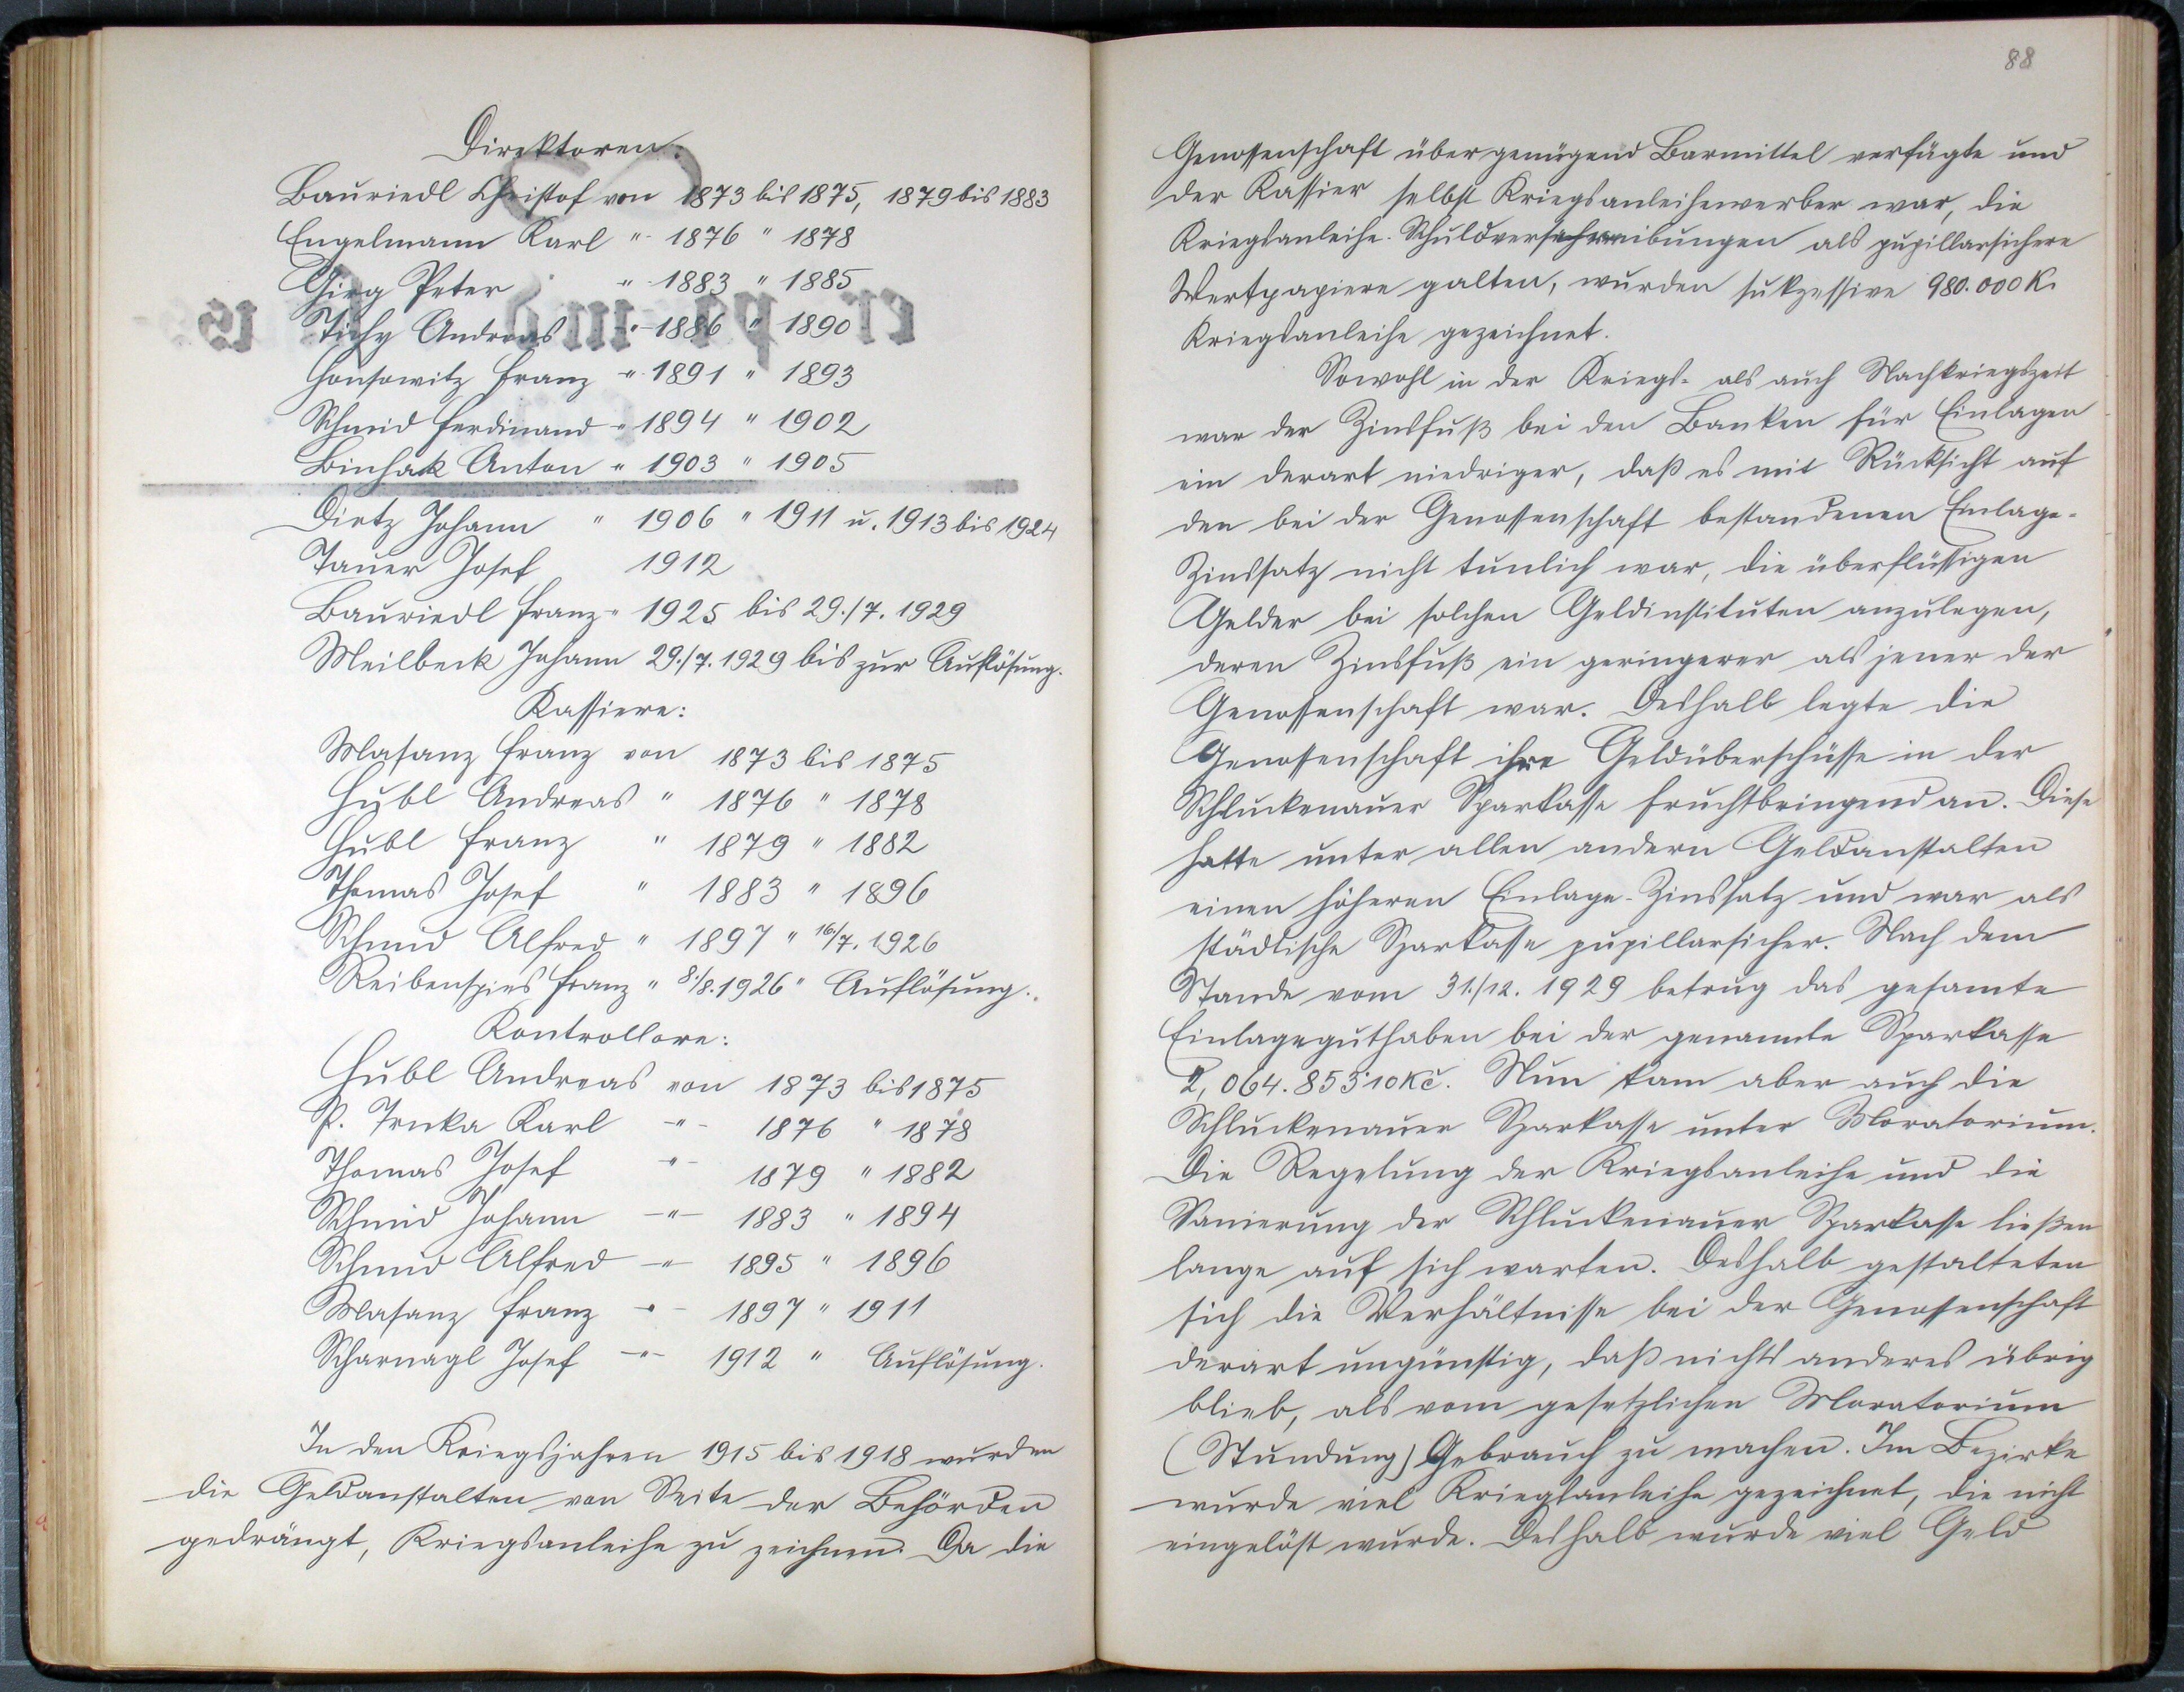 Direktoren:
Bauriedl Christof von 1873 bis 1875, 1879 bis 1883
Engelmann Karl " 1876 " 1878
Girg Peter " 1883 " 1885
Tichy Andreas " 1886 " 1890
Honsowitz Franz " 1891 " 1893
Schmid Ferdinand " 1894 " 1902
Binhak Anton " 1903 " 1905
Dietz Johann " 1906 " 1911 u. 1913 bis 1924
Tauer Josef 1912
Bauriedl Franz " 1925 bis 29./7. 1929
Meilbeck Johann 29./7. 1929 bis zur Auflösung.
Kassiere:
Masanz Franz von 1873 bis 1875
Hübl Andreas " 1876 " 1878
Hubl Franz " 1879 " 1882
Thomas Josef " 1883 " 1896
Schmid Alfred " 1897 " 16/7. 1926
Reibenspies Franz " 8./8. 1926 " Auflösung.
Kontrollore:
Hubl Andreas von 1873 bis 1875
P. Trnka Karl -"- 1876 " 1878
Thomas Josef -"- 1879 " 1882
Schmid Johann -"- 1883 " 1894
Schmid Alfred -"- 1895 " 1896
Masanz Franz -"- 1897 " 1911
Scharnagl Josef -"- 1912 " Auflösung.
In den Kriegsjahren 1915 bis 1918 wurden
die Geldanstalten von Seite der Behörden
gedrängt, Kriegsanleihe zu zeichnen. Da die
88
Genossenschaft über genügend Barmittel verfügte und
der Kassier selbst Kriegsanleihewerber war, die
Kriegsanleihe-Schuldverschreibungen als pupillarsichere
Wertpapiere galten, wurden sukzessive 980.000 K.
Kriegsanleihe gezeichnet.
Sowohl in der Kriegs- als auch Nachkriegszeit
war der Zinsfuß bei den Banken für Einlagen
ein derart niedriger, daß es mit Rücksicht auf
den bei der Genossenschaft bestandenen Einlage-
Zinssatz nicht tunlich war, die überflüssigen
Gelder bei solchen Geldinstituten anzulegen,
deren Zinsfuß ein geringerer als jener der
Genossenschaft war. Deshalb legte die
Genossenschaft ihre Geldüberschüsse in der
Schluckenauer Sparkasse fruchtbringend an. Diese
hatte unter allen andern Geldanstalten
einen höheren Einlage-Zinssatz und war als
städtische Sparkasse pupillarsicher. Nach dem
Stande vom 31./12. 1929 betrug das gesamte
Einlageguthaben bei der genannte Sparkasse
2,064.853·10 Kč. Nun kam aber auch die
Schluckenauer Sparkasse unter Moratorium.
Die Regelung der Kriegsanleihe und die
Sanierung der Schluckenauer Sparkasse ließen
lange auf sich warten. Deshalb gestalteten
sich die Verhältnisse bei der Genossenschaft
derart ungünstig, daß nichts anderes übrig
blieb, als vom gesetzlichen Moratorium
(Stundung) Gebrauch zu machen. Im Bezirke
wurde viel Kriegsanleihe gezeichnet, die nicht
eingelöst wurde. Deshalb wurde viel Geld